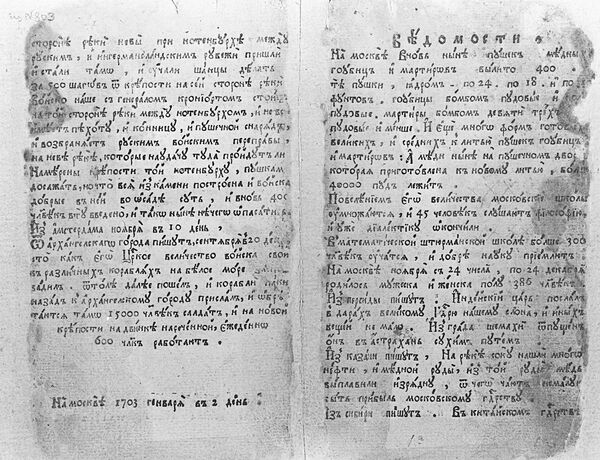 стороне реки невы при нотенбурхе между
руским, и ингермонландским рубежи пришли
и стали тамо, и учали шанцы делать
за 500 шаговъ ѿ крепости на сей стороне реки
войско наше с генералом крониортом стоит
на той стороне реки между нотенбурхом, и не
имеетъ пехоту, и конницу, и пушечной снарядъ,
и возбраняетъ руским войским переправы,
на неве реке, которые наудачу туда пройдутъ ли
Намерены крепости той нотенбурху, пушкам
досажать, но что вся из камени построена и войска
добрые в ней во ѡсаде суть, и вновь 400
члвекъ вту введено, и тако ныне нечегѡ ѡпасатися
Из амстердама ноября въ 10 день.
Ѿ архангелскагѡ города пишутъ, сентября въ 20 день
что какъ егѡ Црское величество войска свои
въ различныхъ корабляхъ на белое море
вадил. ѿтоле дале пошел, и корабли паки
назадъ к архангелскому городу прислалъ, и ѡбре
таются тамо 15000 члвекъ салдатъ, и на новой
крепости на двинке нареченной ежеденнѡ
600 члкъ работаютъ.
На москве 1703 генваря въ 2 день :
Вѣдомости
На москве вновь ныне пушекъ медныхъ
гоубицъ и мартировъ вылито 400
те пушки, ядромъ. по 24. по 18. и по
фунтовъ. гоубицы бомбом пудовые и
пудовые. мартиры бомбом девяти трехъ
пудовые и менше. И еще много форм готовыхъ
великихъ, и среднихъ к литью пушекъ гоубицъ
и мартировъ: А меди ныне на пушечном дворе,
которая приготовлена к новому литью, болше
40000 пудъ лежитъ.
Повелением егѡ величества московские школы
умножаются, и 45 человекъ слушаютъ философию,
и уже диалектику ѡкончили.
В математической штюрманской школе болше 300
члвекъ учатся, и добре науку приемлютъ.
На москве ноября съ 24 числа, по 24 декабря
родилось мужеска и женска полу 386 члвекъ.
Из персиды пишутъ. Индейский царь послалъ
в дарахъ великому Гдрю нашему слона, и иныхъ
вещей не мало. Из града шемахи ѿпущенъ
онъ въ астрахань сухим путем.
Из казани пишутъ, На реке соку нашли много
нефти, и медной руды, из той руды медь
выплавили изрядну, ѿ чего чаютъ немалую
быть прибыль московскому гдрству.
Изъ сибири пишутъ. Въ китайском гдрстве